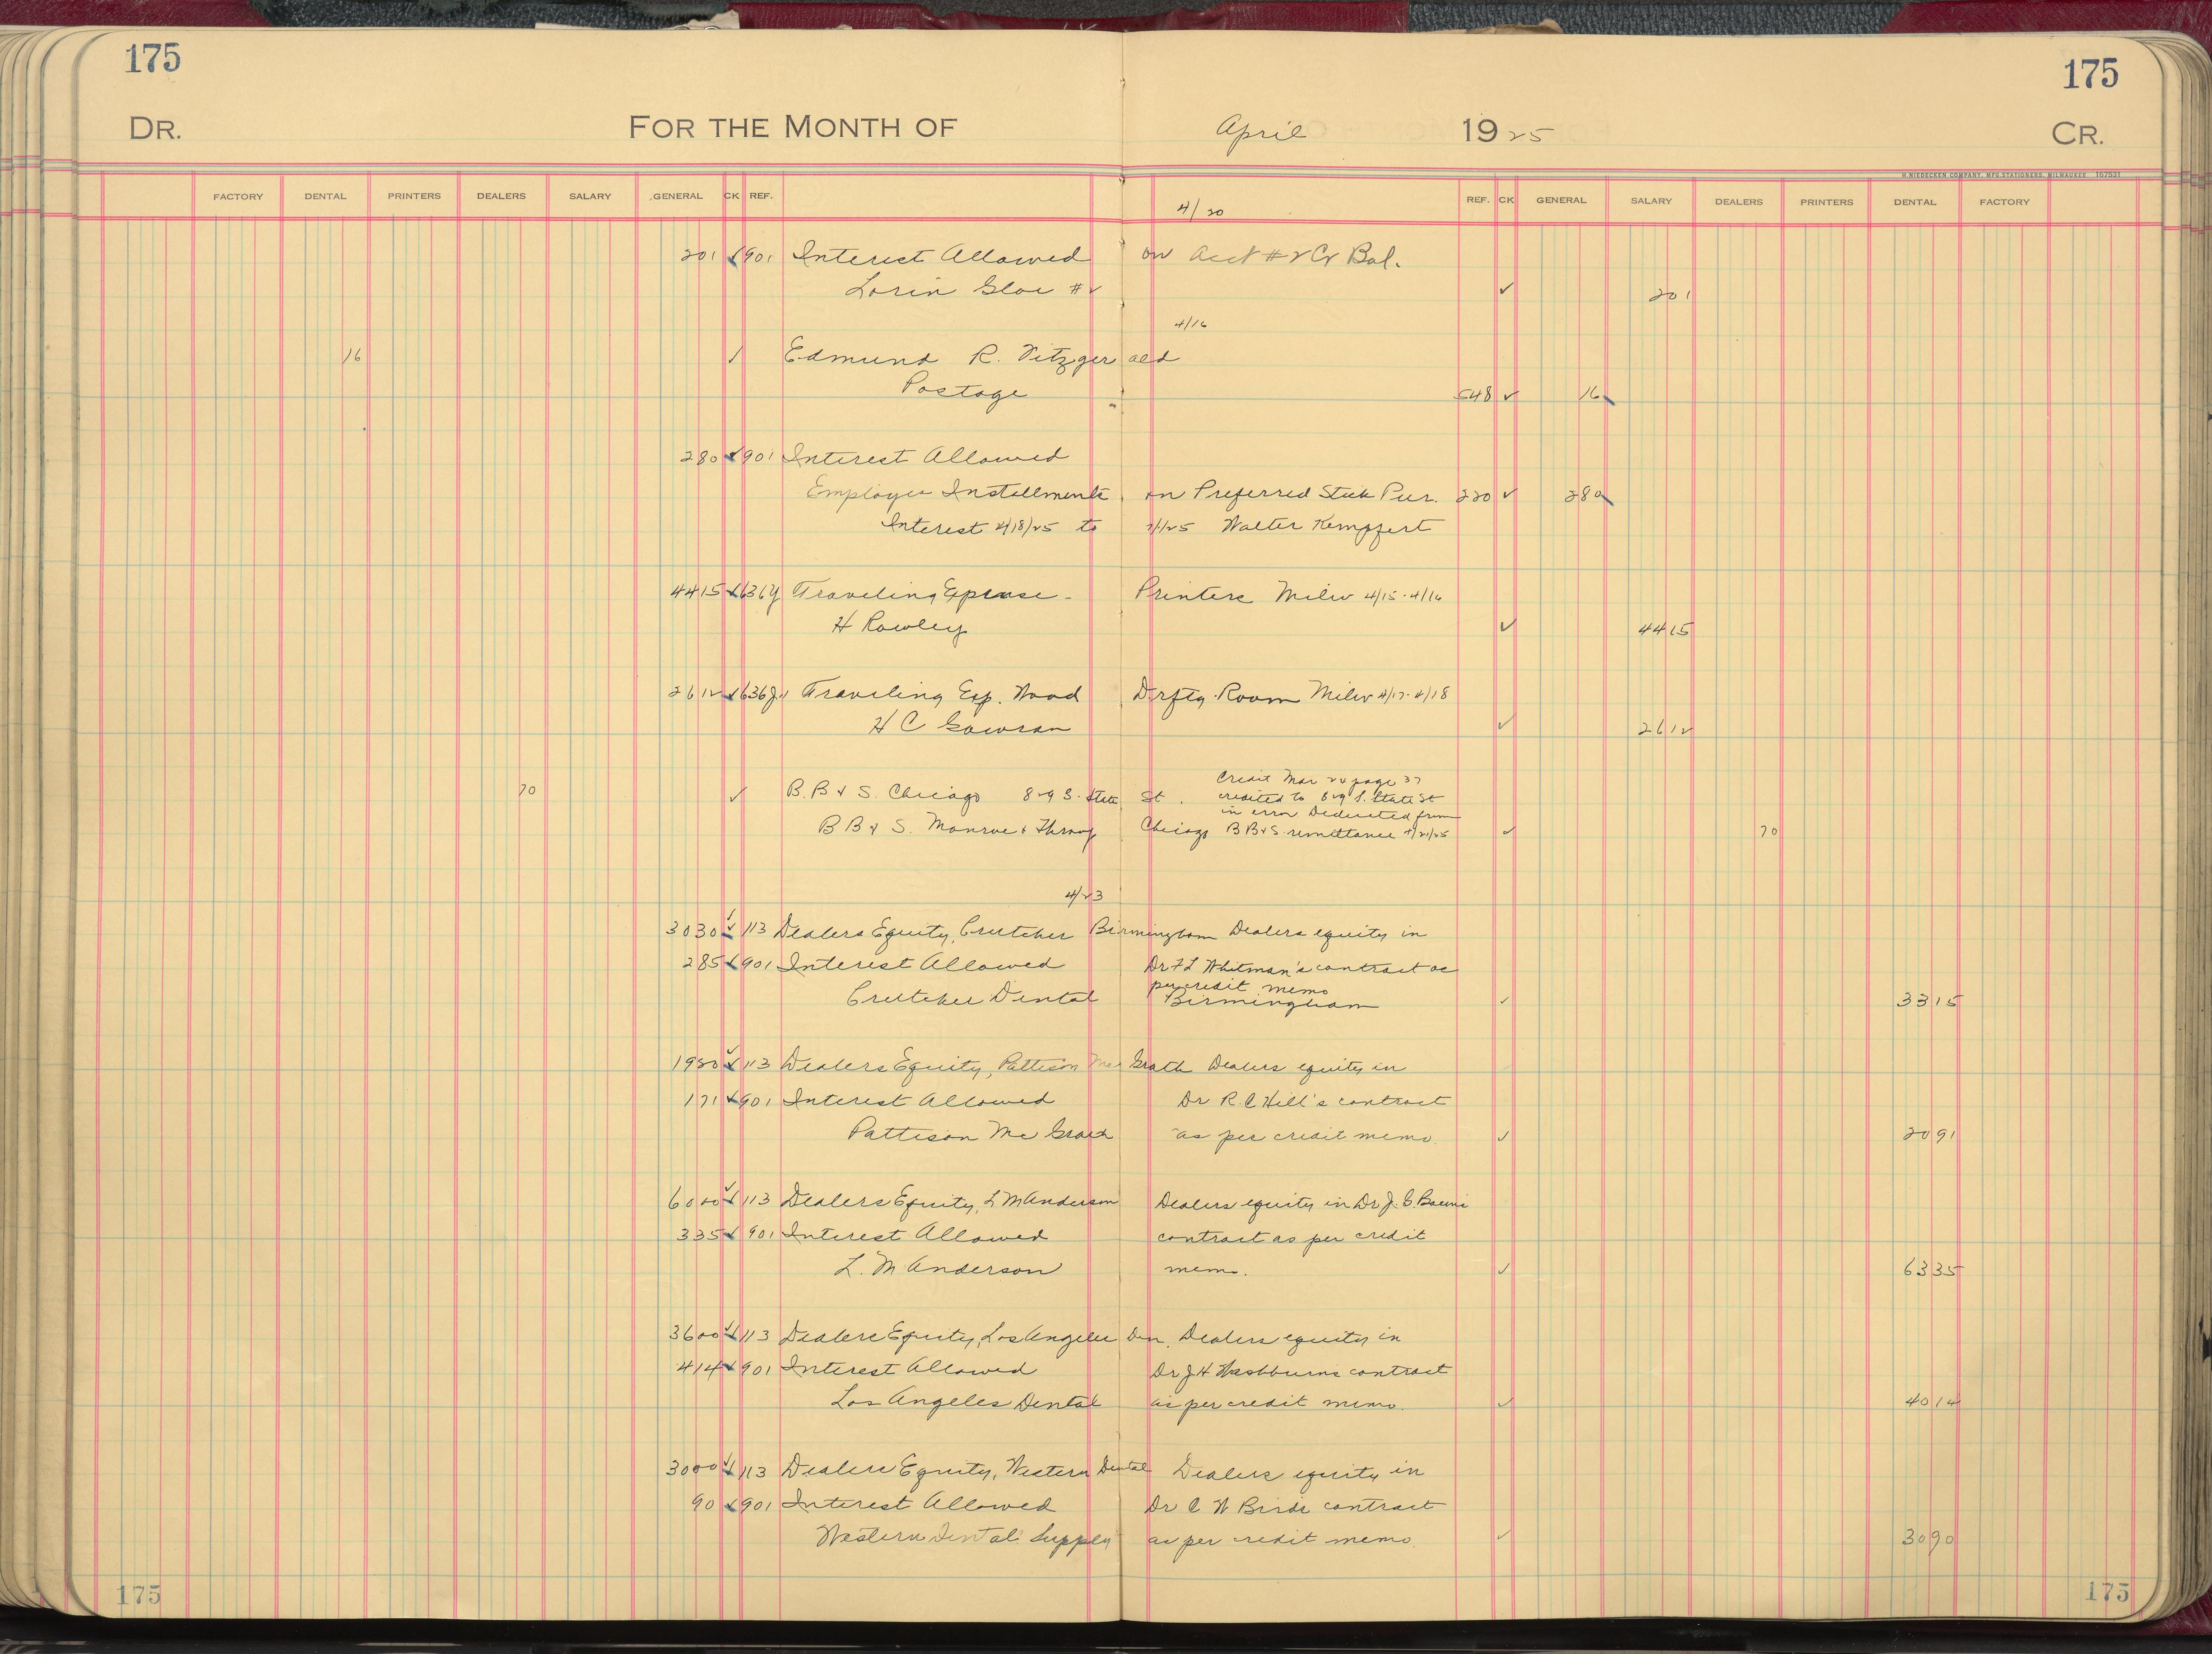 175 175
DR. FOR THE MONTH OF April 1925 CR.
H. NIEDECKEN COMPANY, MFG. STATIONERS, MILWAUKEE 157531
FACTORY DENTAL PRINTERS DEALERS SALARY GENERAL CK REF. REF. CK GENERAL SALARY DEALERS PRINTERS DENTAL FACTORY
4/20
201 ✓ 901 Interest Allowed on Acct #2 Cr Bal.
Lorin Gloe #2 ✓ 201
4/16
16 ✓ Edmund R. Fitzgerald
Postage 548 ✓ 16
280 ✓ 901 Interest Allowed
Employees Installments on Preferred Stock Pur. 220 ✓ 280
Interest 4/18/25 to 7/1/25 Walter Kempfert
4415 ✓ 636y Traveling Expense - Printers Milw 4/15-4/16
H Rowley ✓ 4415
2612 ✓ Traveling Exp. Wood Room Milw 4/17-4/18
H C Gowran ✓ 2612
Credit Mar 24 page 37
70 ✓ B.B & S. Chicago 829 S. State St. credited to 829 S. State St
in error Deducted from
B B & S. Monroe & Throop Chicago B B & S remittance 4/21/25 ✓ 70
4/23
3030 ✓ 113 Dealers Equity, Crutcher Birmingham Dealers equity in
285 ✓ 901 Interest Allowed Dr F L Whitman's contract as
per credit memo
Crutcher Dental Birmingham ✓ 3315
1920 ✓ 113 Dealers Equity, Pattison McGrath Dealers equity in
171 ✓ 901 Interest Allowed Dr R. C Hill's contract
Pattison McGrath as per credit memo. ✓ 2091
6000 ✓ 113 Dealers Equity, L M Anderson Dealers equity in Dr J. C.
335 ✓ 901 Interest Allowed contract as per credit
L. M Anderson memo. ✓ 6335
3600 ✓ 113 Dealers Equity, Los Angeles Den. Dealers equity in
414 ✓ 901 Interest Allowed Dr J H Washburns contract
Los Angeles Dental as per credit memo. ✓ 4014
3000 ✓ 113 Dealers Equity, Western Dental Dealers equity in
90 ✓ 901 Interest Allowed Dr C W Birds contract
Western Dental Supply as per credit memo. ✓ 3090
175 175